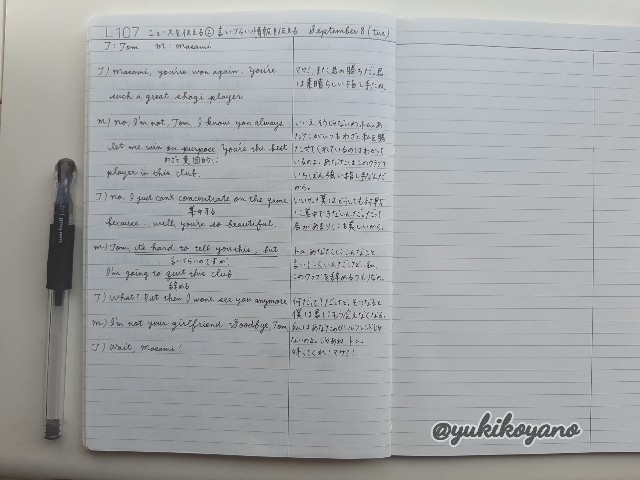 L107 ニュースを伝える② 言いづらい情報を伝える September 8 (tue)
T: Tom M: Masami
T) Masami, you're won again. You're
such a great shogi player.
M) No, I'm not, Tom. I know you always
let me win on purpose. You're the best
わざと 意図的に
player in this club.
T) No, I just can't concentrate on the game
集中する
because.. well, you're so beautiful.
M) Tom, it's hard to tell you this, but
言いづらいのですが、
I'm going to quit this club
辞める
T) What? But then I won't see you anymore
M) I'm not your girlfriend. Goodbye, Tom
T) Wait, Masami!
マサミ、また君の勝ちだ。君
は素晴らしい指し手だね。
いいえ、そうじゃないわ、トム。あ
なたがいつもわざと私を勝
たせてくれているのはわかって
いるのよ。あなたはこのクラブで
いちばん強い指し手なんだ
から。
いいや、僕はどうしても対局
に集中できないんだ。だって
君があまりにも美しいから。
トム、あなたにこんなこと
言いにくいんだけど、私、
このクラブを辞めるつもりなの。
何だって！だけど、そうなると
僕は君にもう会えなくなる。
私はあなたのガールフレンドじゃ
ないのよ。じゃあね、トム。
待ってくれ！マサミ！
uni-ball
@yukikoyano